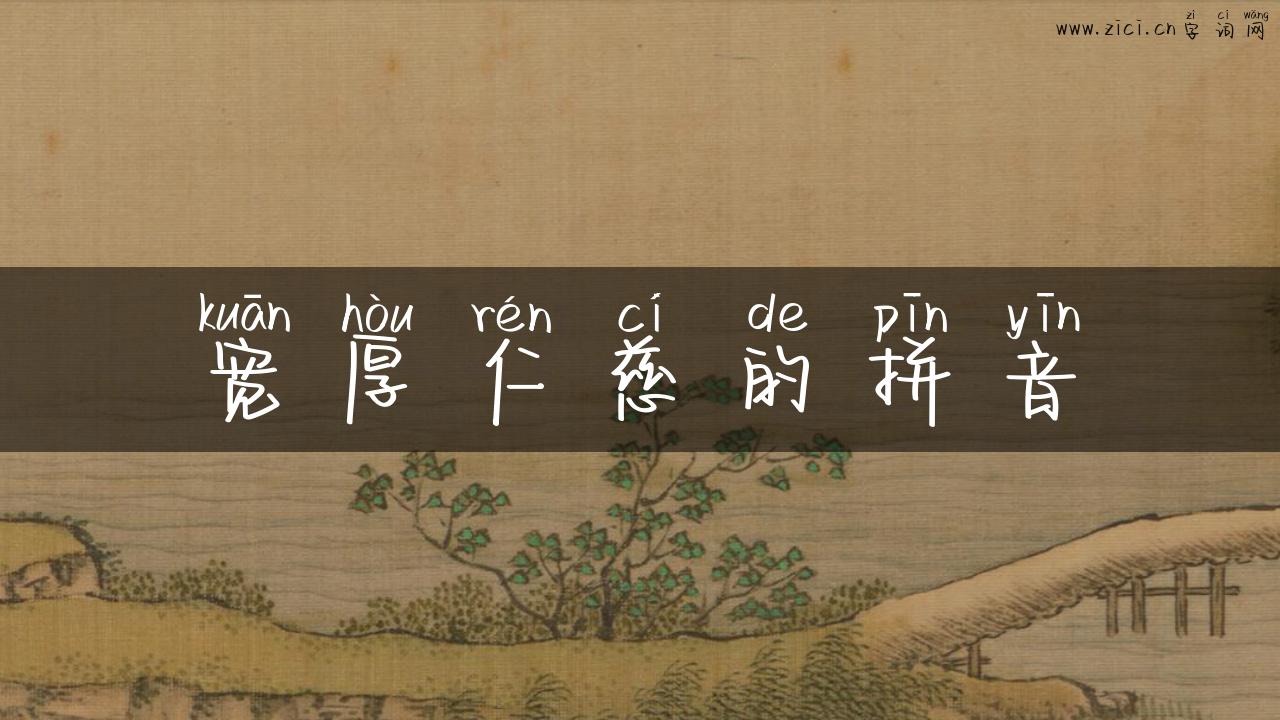 zì cí wǎng
www.zici.cn 字 词 网
kuān hòu rén cí de pīn yīn
宽 厚 仁 慈 的 拼 音